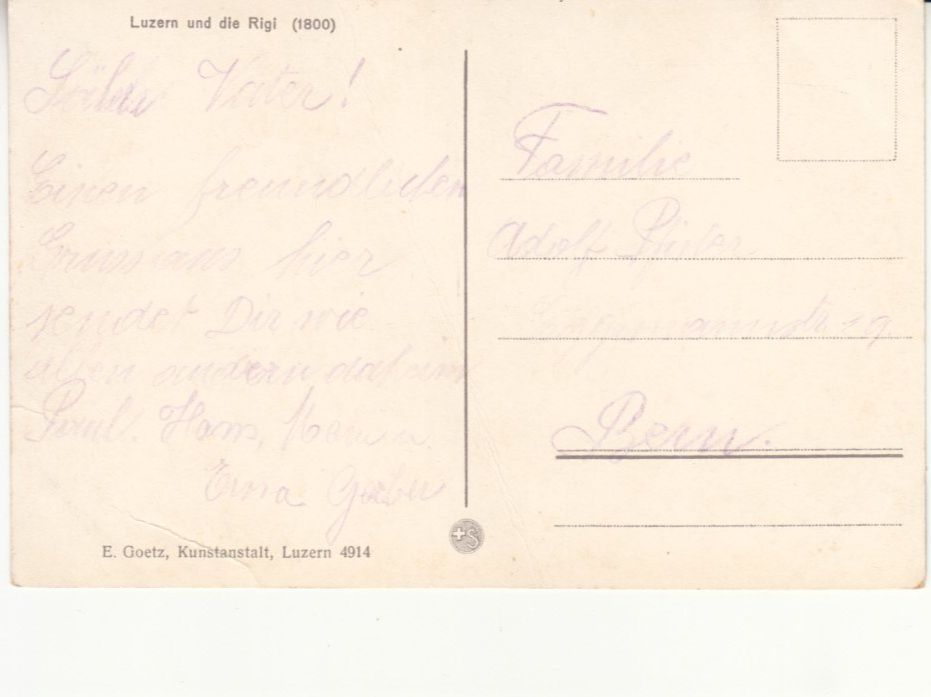 Luzern und die Rigi (1800)
Vater!
Einen freundlichen
Gruss aus hier
sendet Dir wie
allen andern daheim
Paul. Hans,
Erna
E. Goetz, Kunstanstalt, Luzern 4914
+S
Familie
Adolf
19.
Bern.